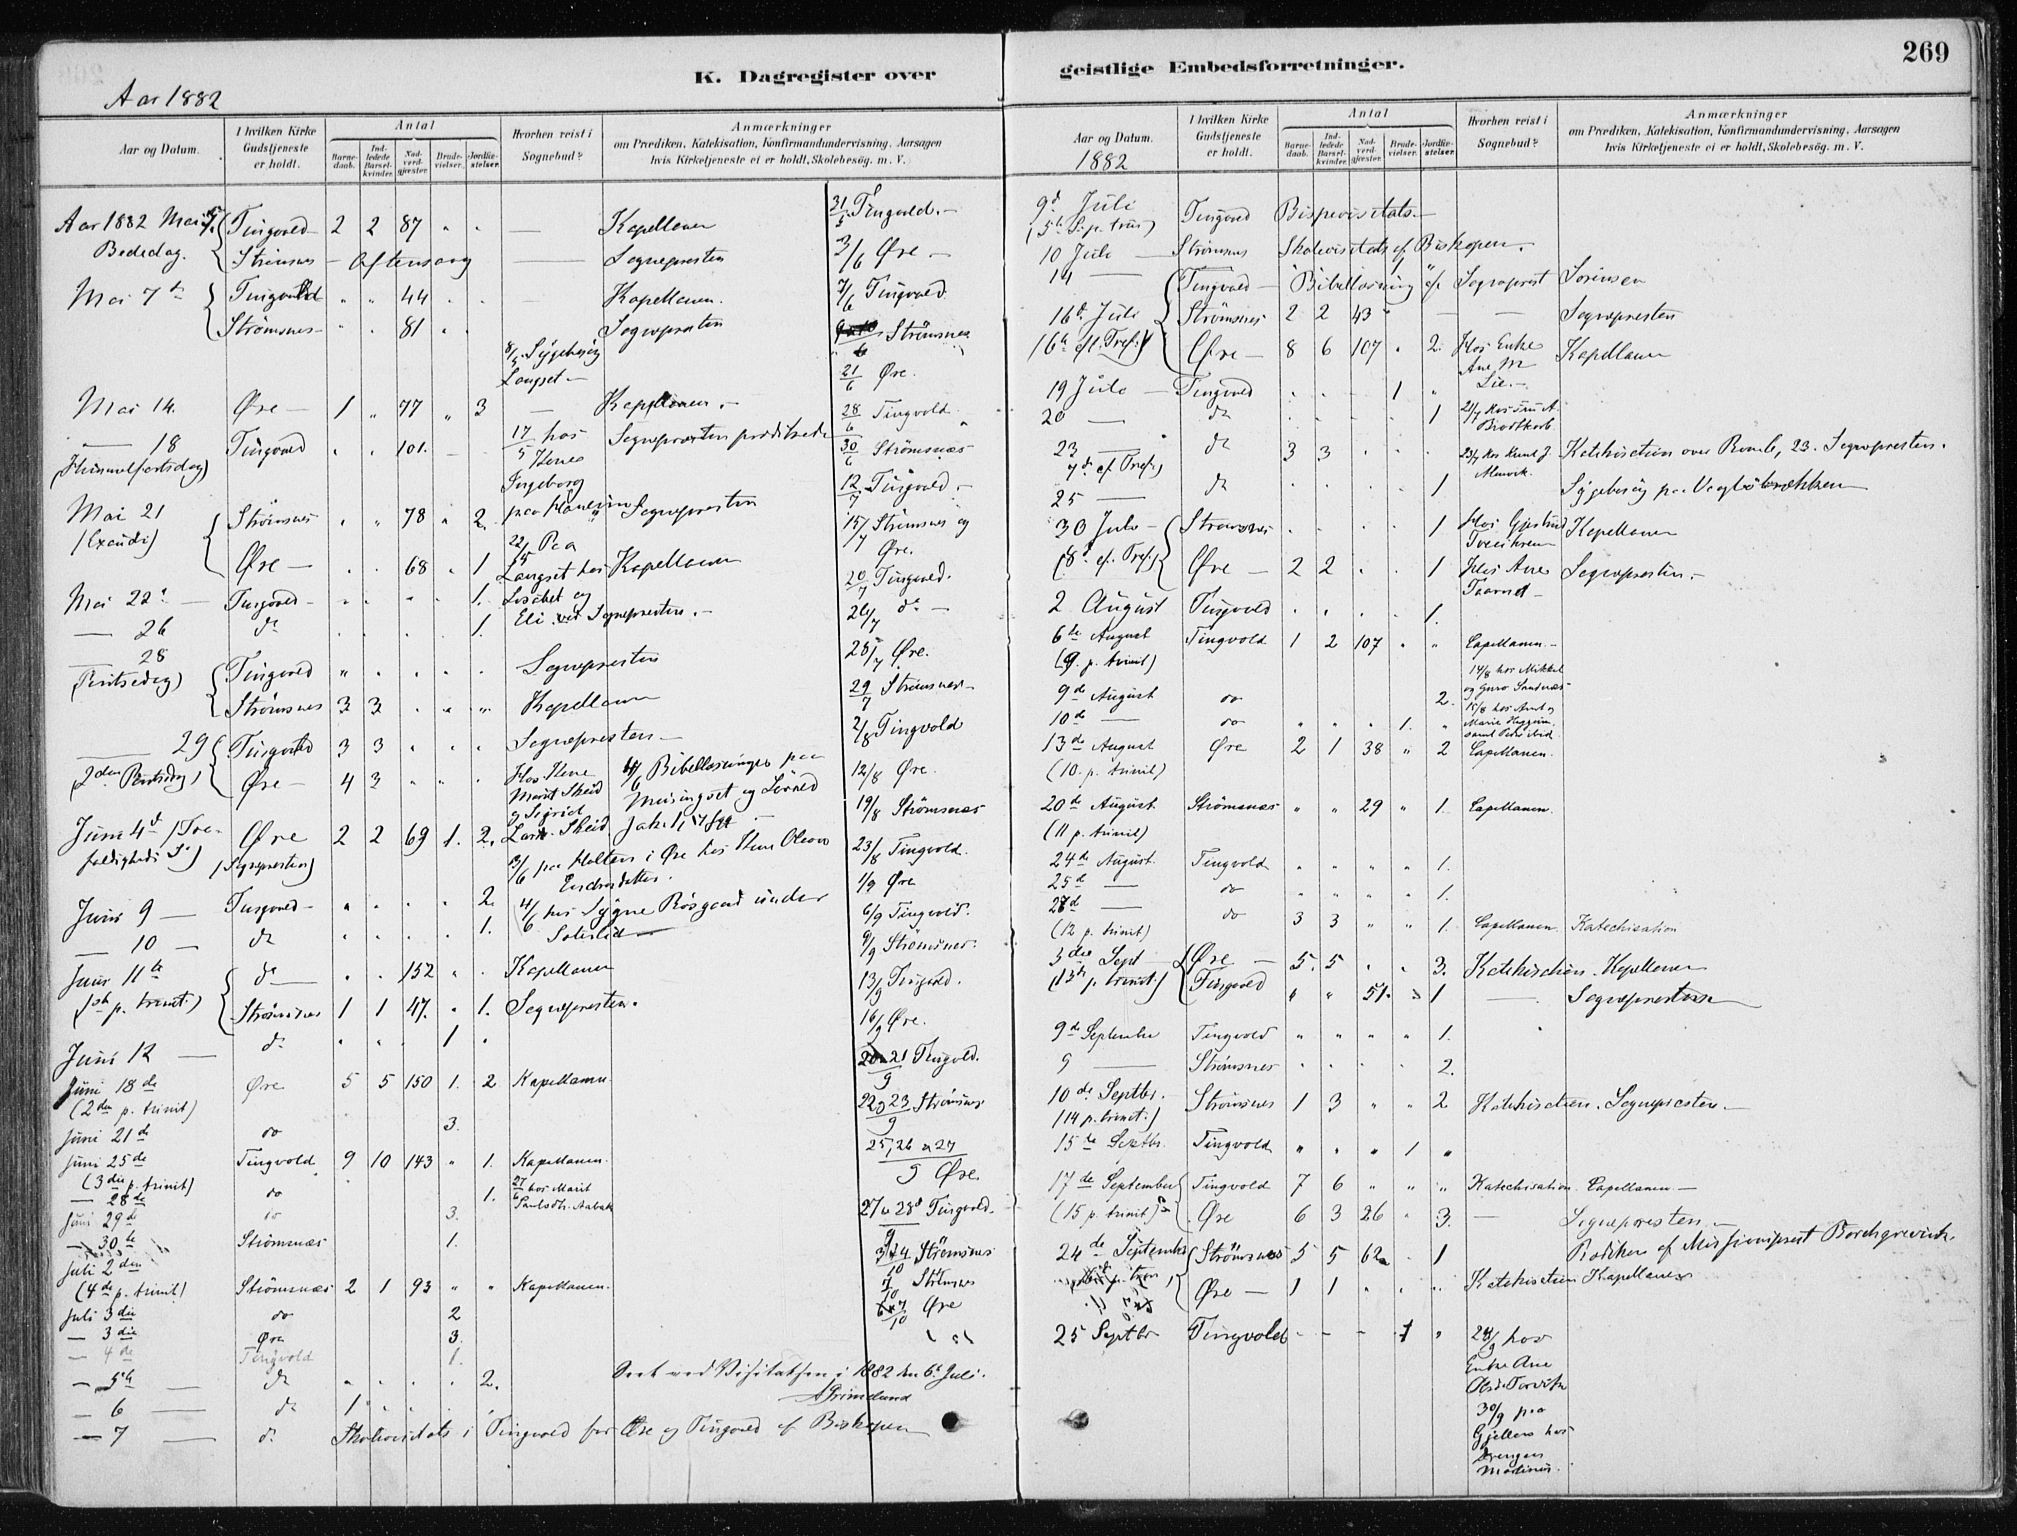 269
K. Dagregister over
geistlige Embedsforretninger.
Aar 1882
Aar og Datum.
I hvilken Kirke Gudstjeneste er holdt.
Antal
Barnedaab.
Indledede Barselkvinder.
Nadverdgjæster.
Brudevielser.
Jordfæstelser.
Hvorhen reist i Sognebud?
Anmærkninger
om Prædiken, Katekisation, Konfirmandundervisning, Aarsagen
hvis Kirketjeneste ei er holdt, Skolebesøg. m. V.
Aar 1882 Mai 5. Tingvold 2 2 87 " " — Kapellanen
Bededag. Strømsnes - Aftensang — Sognepresten
Mai 7de Tingvold " " 44 " " — Kapellanen.
Strømsnes " " 81 " " Sognepresten
8/5 Sygebesøg
Langset —
Mai 14. Øre — 1 " 77 " 3 — Kapellanen. —
— 18 Tingvold " " 101. 17/5 hos Sognepresten prædikede
(Himmelfartsdag) Ingeborg
Mai 21 Strømsnes " " 78 " 2. Sognepresten
(Exaudi) 22/5 Paa
Øre — " " 68 " 1. Langset hos Kapellanen
Mai 22de — Tingvold — " " " " 1. Lisabet og
— 26 do " " " " 1. Eli. ved Sognepresten. —
— 28 Tingvold " " " " " Sognepresten
(Pintsedag) Strømsnes 3 3 " " " Kapellanen
— 29 Tingvold 3 3 " " " Sognepresten —
(2den Pintsedag) Øre — 4 3 " " " Hos
Marit Skeid 4/6 Bibellæsninger paa
g Sigrid Meisingset og
Juni 4de (Tre- Øre 2 2 69 1. 2. Skeid
foldigheds S.) (Sognepresten) 3/6 paa Holten i Øre hos
Endresdatter.
Juni 9 — Tingvold — " " " " 2. 4/6 hos Sygne Røsgaard under
— 10 — do " " " " 1.
Juni 11te do — " " 152 " " Kapellanen
(1ste p. trinit.) Strømsnes 1 1 47. " 1. Sognepresten.
Juni 12 — do " " " 1 "
Juni 18de Øre 5 5 150 1. 2 Kapellanen
(2den p. trinit)
Juni 21de do 3.
Juni 25de Tingvold 9 10 143 " 1. Kapellanen.
(3die p. trinit) 27/6 hos Marit
— 28de do 1. Paulsdtr. Aabak
Juni 29de do 3.
— 30te Strømsnæs 1.
Juli 2den
(4de p. trinit) Strømsnæs 2 1 93 " " Kapellanen.
Juli 3die do 2
— 3die Øre 3.
— 4de Tingvold 1.
— 5te — do " " " " 2.
— 6 — do 1 " " " "
— 7 — do Skolevisitats i Tingvold for Øre og Tingvold af Biskopen
Seet ved Visitatsen i 1882 den 6te Juli.
AGrimelund
31/5 Tingvold. —
3/6 Øre —
7/6 Tingvold
Strømsnes
21/6 Øre.
28/6 Tingvold.
30/6 Strømsnæs
12/7 Tingvold. —
15/7 Strømsnes og
Øre.
20/7 Tingvold.
26/7 do —
28/7 Øre.
29/7 Strømsnes —
2/8 Tingvold
12/8 Øre.
19/8 Strømsnæs
23/8 Tingvold.
1/9 Øre
6/9 Tingvold.
9/9 Strømsnes.
13/9 Tingvold.
16/9 Øre.
21/9 Tingvold.
22 & 23/9 Strømsnes
25, 26 & 27
9 Øre
27 & 28de Tingvold.
9
3 & 4/10 Strømsnes
7/10 Strømsnes
10 Øre
Aar og Datum.
1882
I hvilken Kirke Gudstjeneste er holdt.
Antal
Barnedaab.
Indledede Barselkvinder.
Nadverdgjæster.
Brudevielser.
Jordfæstelser.
Hvorhen reist i Sognebud?
Anmærkninger
om Prædiken, Katekisation, Konfirmandundervisning, Aarsagen
hvis Kirketjeneste ei er holdt, Skolebesøg. m. V.
9de Juli Tingvold Bispevisitats. —
(5te S. p. trin)
10 Juli — Strømsnes Skolevisitats af Biskopen.
14 — Tingvold — Bibellæsning af Sogneprest Sørensen
16de Juli Strømsnes 2 2 43 " — — Sognepresten
(6te ef. Tref.) Øre — 8 6 107 " 2. Hos Enke Kapellanen
Ane M
Lie. —
19 Juli — Tingvold " " " 1 "
20 — do " " " " 1 21/7 Hos Fru A.
Brodtkorb
23 — do 3 3 " " " 23/7 Hos Knut J. Katekisation over Romb, 23. Sognepresten.
7de ef. Tref.
25 — do " " " " 1 Sygebesøg paa
30 Juli — Strømsnes 1 Hos Kapellanen
(8de ef. Tref.) Øre — 2 2 " " 1 Hos Ane Sognepresten. —
2 August Tingvold " " " " 1.
6te August Tingvold 1 2 107 " " Capellanen. —
(9. p. trinit) 14/8 hos Mikkel
og Guro Sandnæs
9de August do 2. 15/8 hos Arnt og
10de — do " " " 1. " Marie
13de August Øre 2 1 38 " 2 Capellanen.
(10. p. trinit)
20de August Strømsnæs " " 29 " 1. Capellanen.
(11 p. trinit)
24de August. Tingvold " " " " 1.
25de — do " " " " 1.
27de — do 3 3 " " 1. Capellanen. Katechisation
(12 p. trinit)
3die Sept Øre — 5. 5 " " 3. Katekisation. Kapellanen
(13de p. trinit.) Tingvold " " 51. " 1 — Sognepresten
9de September Tingvold " " " " 1.
9 — Strømsnes 2.
10de Septbr. Strømsnes 1 3 " " 2 Katekisation. Sognepresten —
(14 p. trinit.)
15de Septbr. Tingvold " " " 1 "
17de September Tingvold 7 6 " " " Katechisation. Capellanen —
(15 p. trinit) Øre 6 3 26 " 3. — Sognepresten —
24de September Strømsnes 5 5 62 " 1 Prædiken af Missionsprest Borchgrevink
Øre — 1 1 " " " Katekisation Kapellanen
25 Septbr Tingvold — — — 1 " 24/9 hos
Enke Ane
30/9 paa
Gjellen hos
drengen
Martinus.